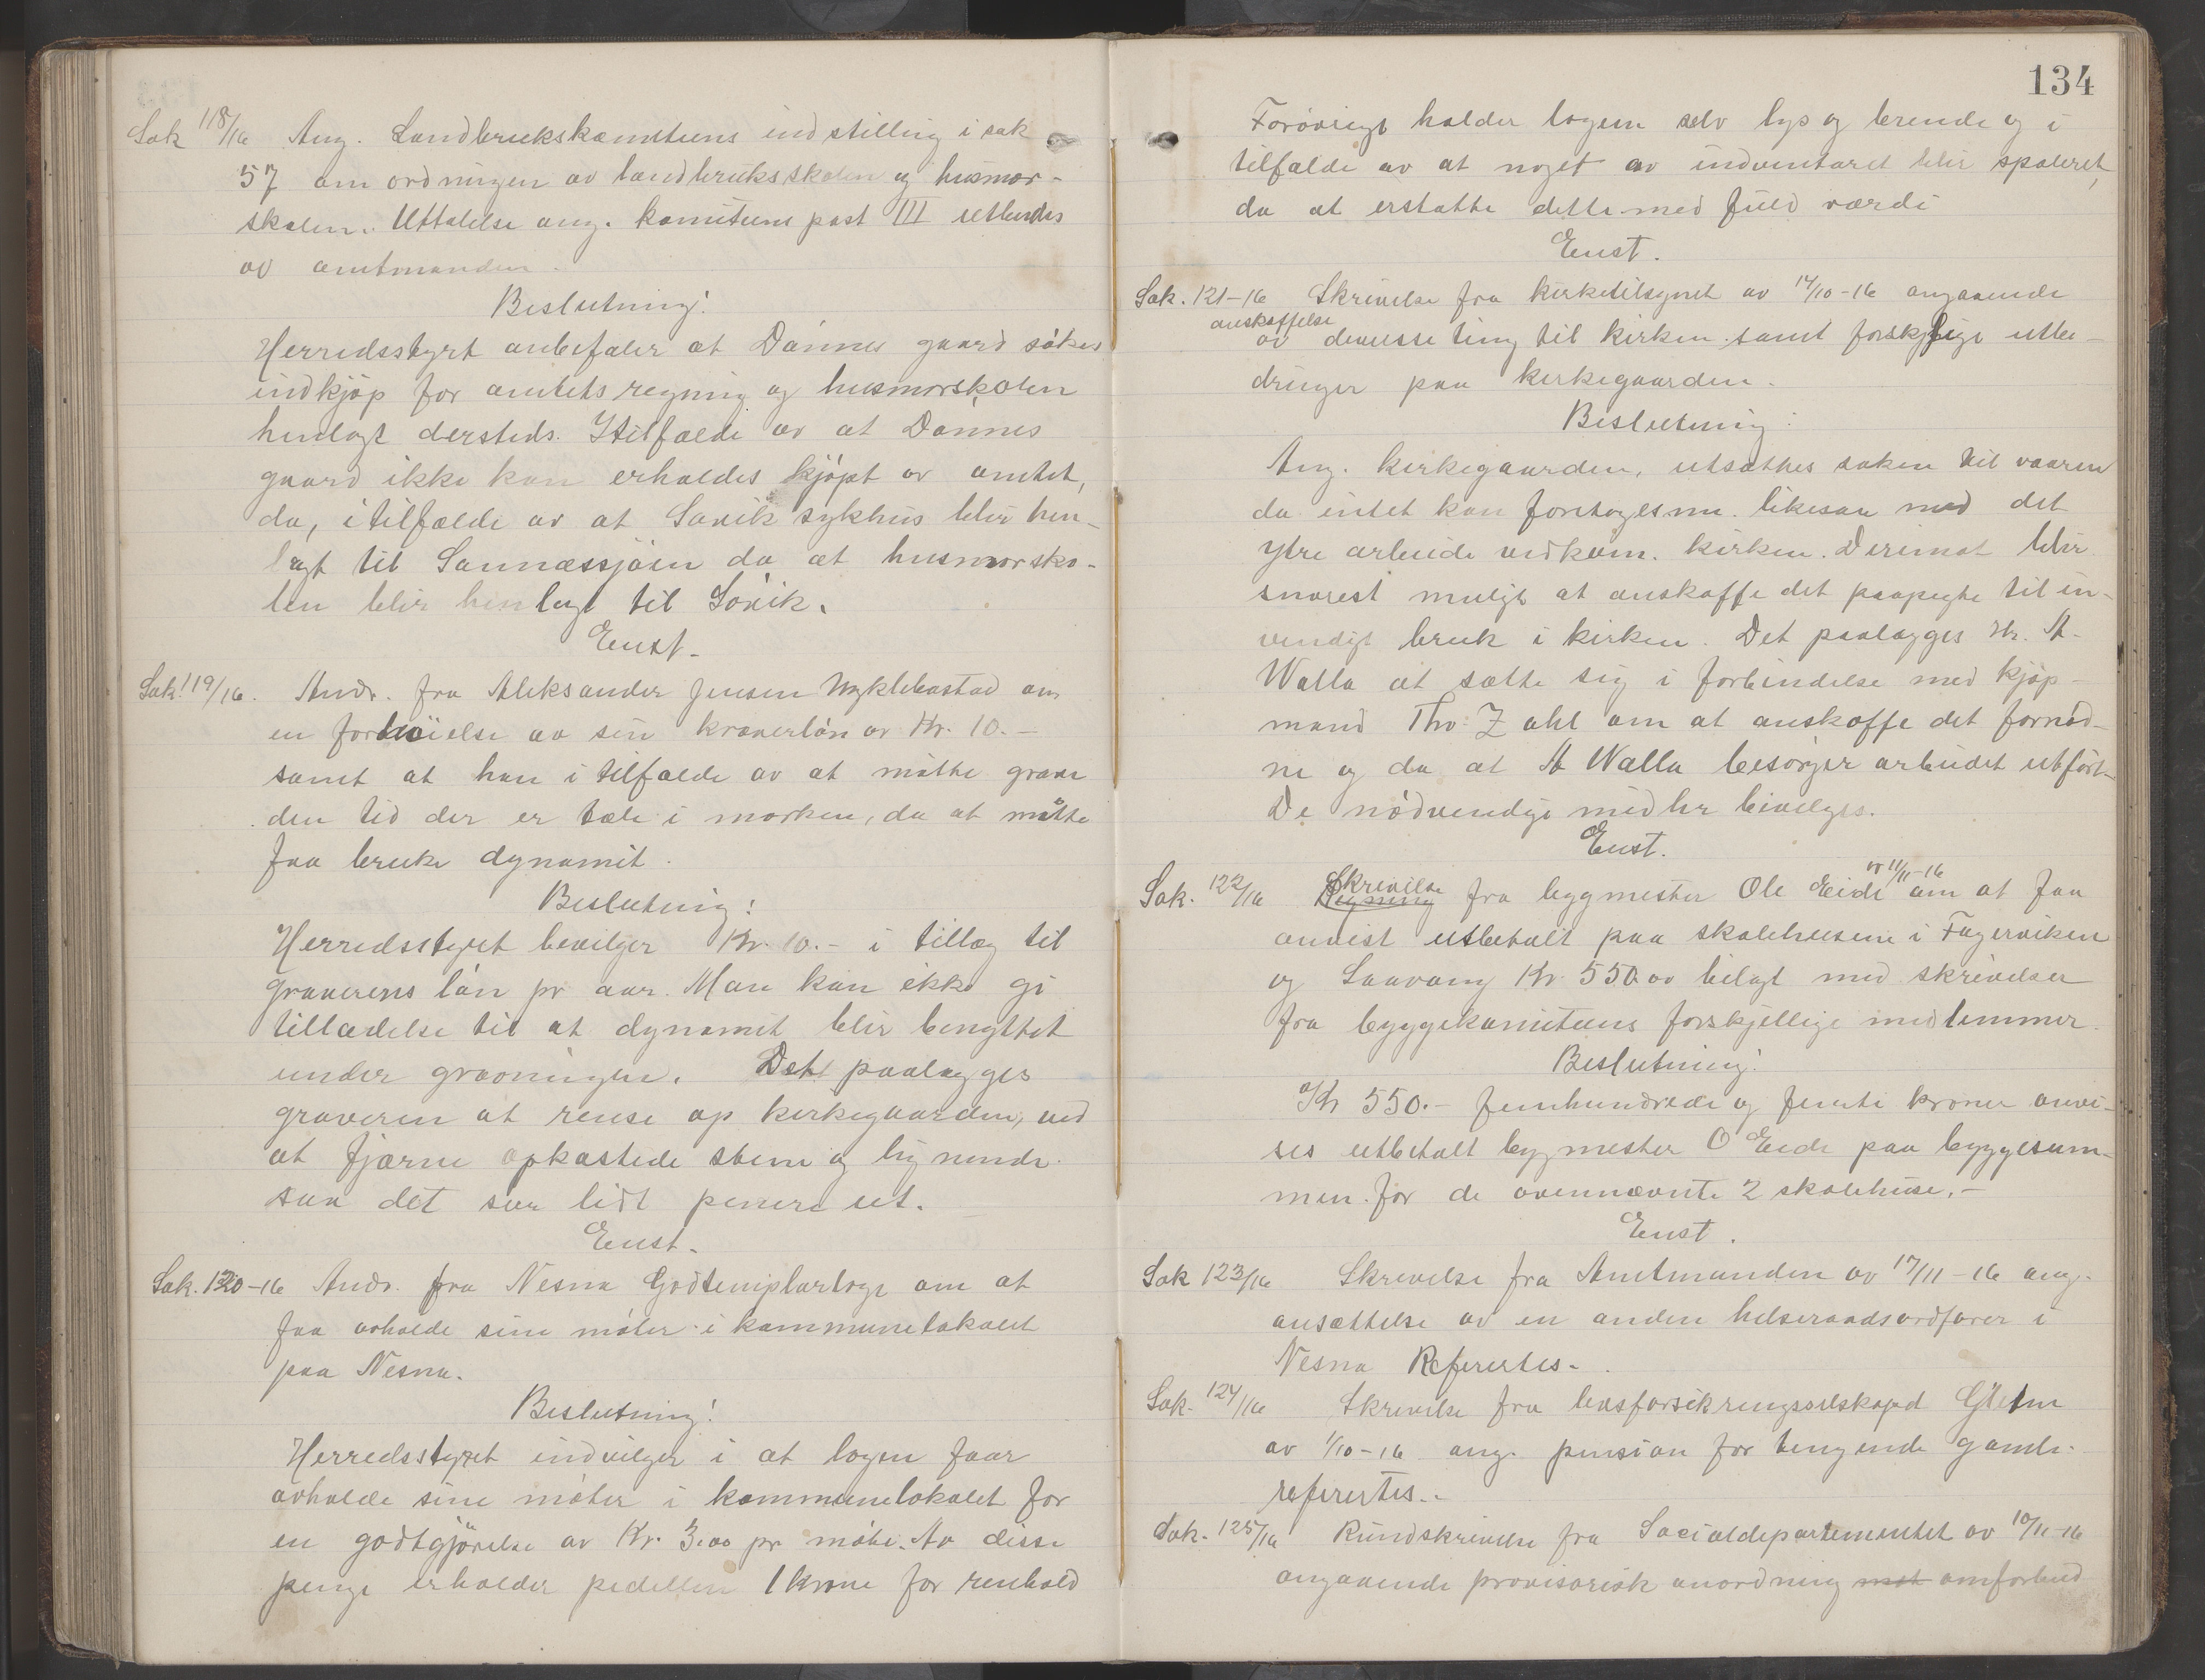 Sak 118/16 Ang. Landbrukskomiteens indstilling i sak
57 om ordningen av landbruksskolen og husmor-
skolen. Uttalelse ang. komiteens post III utbedes
av amtmanden.
Beslutning:
Herredsstyrt anbefaler at Dønnes gaard søkes
indkjøp for amtets regning og husmorskolen
henlagt dersteds. Itilfælde av at Dønnes
gaard ikke kan erholdes kjøpt av amtet,
da, i tilfælde av at Søvik sykhus blir hen-
lagt til Sannæssjøen da at husmorsko-
len blir henlagt til Søvik.
Enst.
Sak 119/16. Andr. fra Aleksander Jensen Nyklebostad om
en forhøielse av sin graverløn av Kr. 10.-
samt at han i tilfælde av at måtte grave
den tid der er tæle i marken, da at måtte
faa bruke dynamit.
Beslutning:
Herredsstyret bevilger Kr. 10.- i tillæg til
graverens løn pr aar. Man kan ikke gi
tilladelse til at dynamit blir benyttet
under gravningen. Det paalægges
graveren at rense op kirkegaarden, ved
at fjærne opkastede stene og lignende
saa det ser lidt penere ut.
Enst.
Sak. 120-16 Andr. fra Nesna Godtemplarloge om at
faa avholde sine møter i kommunelokalet
paa Nesna.
Beslutning:
Herredsstyret indvilger i at logen faar
avholde sine møter i kommunelokalet for
en godtgjørelse av Kr. 3.00 pr møte. Av disse
penge erholder pedellen 1 krone for renhold
134
Forøvrigt holder logen selv lys og brende og i
tilfælde av at noget av indventaret blir spoleret,
da at erstatte dette med fuld værdi
Enst.
Sak. 121-16 Skrivelse fra kirketilsynet av 14/10-16 angaaende
anskaffelse
av diverse ting til kirken samt forskjellige utbe-
dringer paa kirkegaarden.
Beslutning:
Ang. kirkegaarden, utsættes saken til vaaren
da intet kan foretages nu. likesaa med det
ytre arbeide vedkom. kirken. Derimot blir
snarest muligt at anskaffe det paapegte til in-
vendigt bruk i kirken. Det paalægges Hr. A.
Walla at sætte sig i forbindelse med kjøp-
mand Thv. Zahl om at anskaffe det fornød-
ne og da at A Walla besørger arbeidet utført.
De nødvendige midler bevilges.
Enst.
Sak. 122/16 Skrivelse fra bygmester Ole Eide av 11/11-16 om at faa
anvist utbetalt paa skolehusene i Fagerviken
og Saavang Kr. 550.00 bilagt med skrivelser
fra byggekomiteens forskjellige medlemmer.
Beslutning:
Kr 550.- femhundrede og femti kroner anvi-
ses utbetalt bygmester O Eide paa byggesum-
men for de ovennævnte 2 skolehuse.-
Enst.
Sak 123/16 Skrivelse fra Amtmanden av 17/11-16 ang.
ansættelse av en anden helseraadsordfører i
Nesna Refereres.
Sak. 124/16 Skrivelse fra livsforsikringsselskapet
av 1/10-16 ang. pension for trengende gamle.
refereres.
Sak. 125/16 Rundskrivelse fra Socialdepartementet av 10/11-16
angaaende provisorisk anordning om forbud